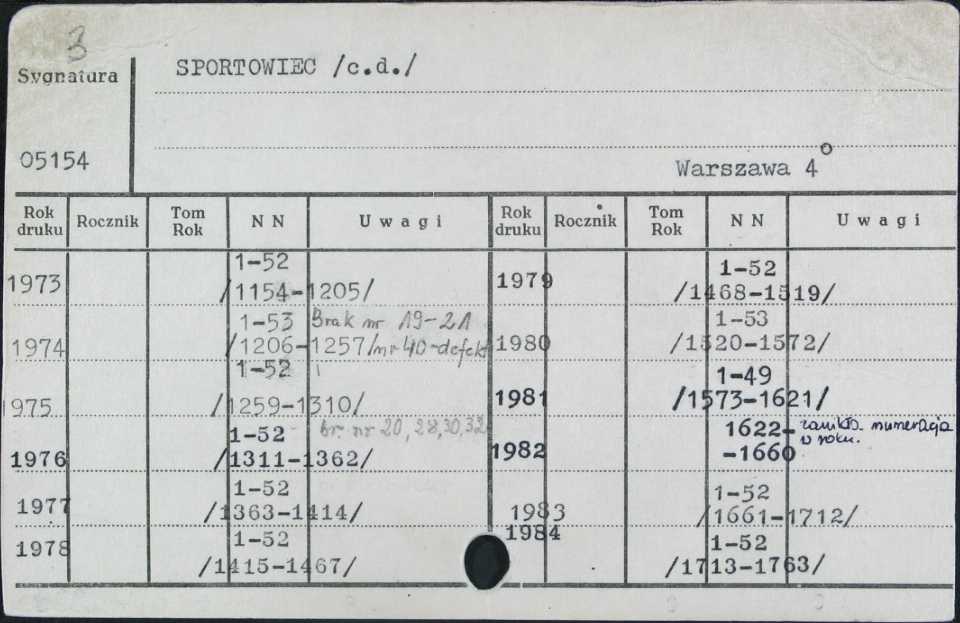 3
Sygnatura
SPORTOWIEC /c.d./
05154
Warszawa 4°
Rok druku Rocznik Tom Rok NN Uwagi Rok druku Rocznik Tom Rok NN Uwagi
1973 1-52
/1154-1205/
1974 1-53 Brak nr 19-21
/1206-1257/ nr 40-defekt
1-52
975 /1259-1310/
br. nr 20, 28, 30, 32
1976 1-52
/1311-1362/
1977 1-52
/1363-1414/
1978 1-52
/1415-1467/
1979 1-52
/1468-1519/
1980 1-53
/1520-1572/
1981 1-49
/1573-1621/
1982 1622- numeracja
-1660 w roku.
1983 1-52
/1661-1712/
1984 1-52
/1713-1763/